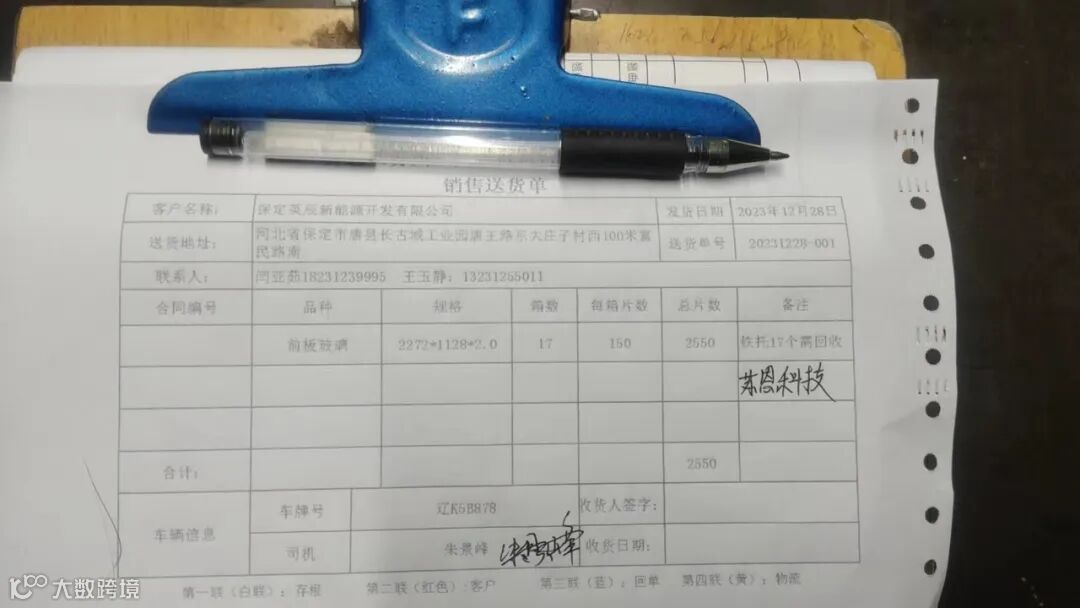 销售送货单
客户名称： 保定英辰新能源开发有限公司 发货日期 2023年12月28日
送货地址： 河北省保定市唐县长古城工业园唐王路东大庄子村西100米富民路南 送货单号 20231228-001
联系人： 闫亚茹18231239995 王玉静：13231255011
合同编号 品种 规格 箱数 每箱片数 总片数 备注
前板玻璃 2272*1128*2.0 17 150 2550 铁托17个需回收
苏恩科技
合计： 2550
车辆信息 车牌号 辽K5B878 收货人签字：
司机 朱景峰 朱景峰 收货日期：
第一联（白联）：存根 第二联（红色）：客户 第三联（蓝）：回单 第四联（黄）：物流
大数跨境